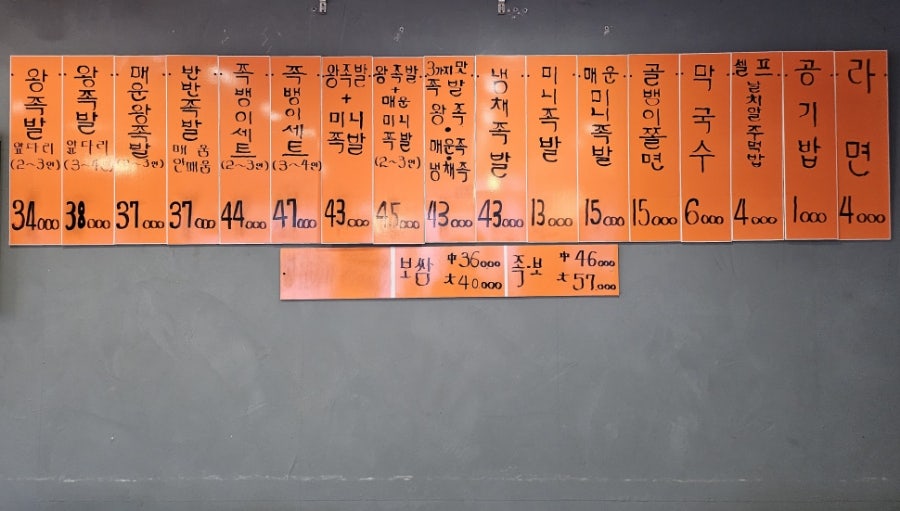 왕족발
앞다리
(2~3인)
34,000
왕족발
앞다리
(3~4인)
38,000
매운왕족발
(2~3인)
37,000
반반족발
매움
안매움
37,000
족뱅이세트
(2~3인)
44,000
족뱅이세트
(3~4인)
47,000
왕족발
+
미니족발
43,000
왕족발
+
매운미니족발
(2~3인)
45,000
3가지맛족발
왕족•매운족•냉채족
43,000
냉채족발
43,000
미니족발
13,000
매운미니족발
15,000
골뱅이쫄면
15,000
막국수
6,000
셀프
날치알주먹밥
4,000
공기밥
1,000
라면
4,000
보쌈 中 36,000
大 40,000
족·보 中 46,000
大 57,000